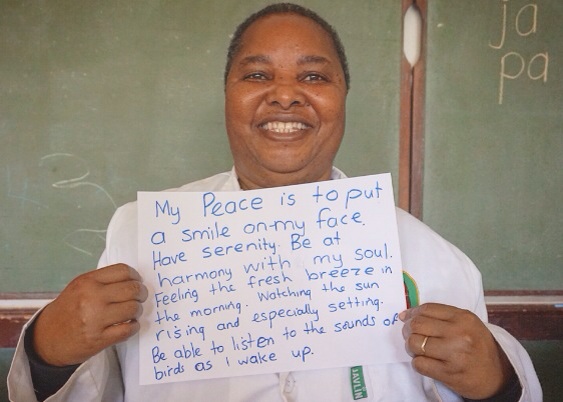 ja
pa
My Peace is to put
a smile on my face.
Have serenity. Be at
harmony with my soul.
Feeling the fresh breeze in
the morning. Watching the sun
rising and especially setting.
Be able to listen to the sounds of
birds as I wake up.
JAVLIN